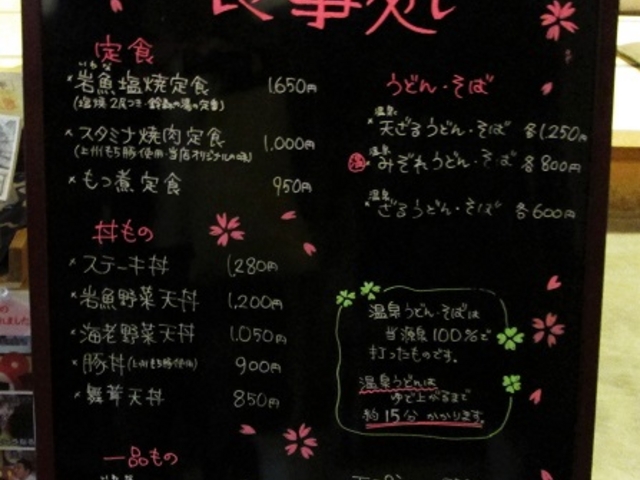 食事処
定食
いわな
*岩魚塩焼定食 1,650円
*スタミナ焼肉定食 1,000円
(上州もち豚使用・当店オリジナルの味)
*もつ煮定食 950円
丼もの
*ステーキ丼 1,280円
*岩魚野菜天丼 1,200円
*海老野菜天丼 1,050円
*豚丼(上州もち豚使用) 900円
*舞茸天丼 850円
一品もの
うどん・そば
温泉
*天ざるうどん・そば 各1,250円
温 *みぞれうどん・そば 各800円
温泉
*ざるうどん・そば 各600円
温泉うどん・そばは
当源泉100%で
打ったものです。
温泉うどんは
ゆで上がるまで
約15分かかります。